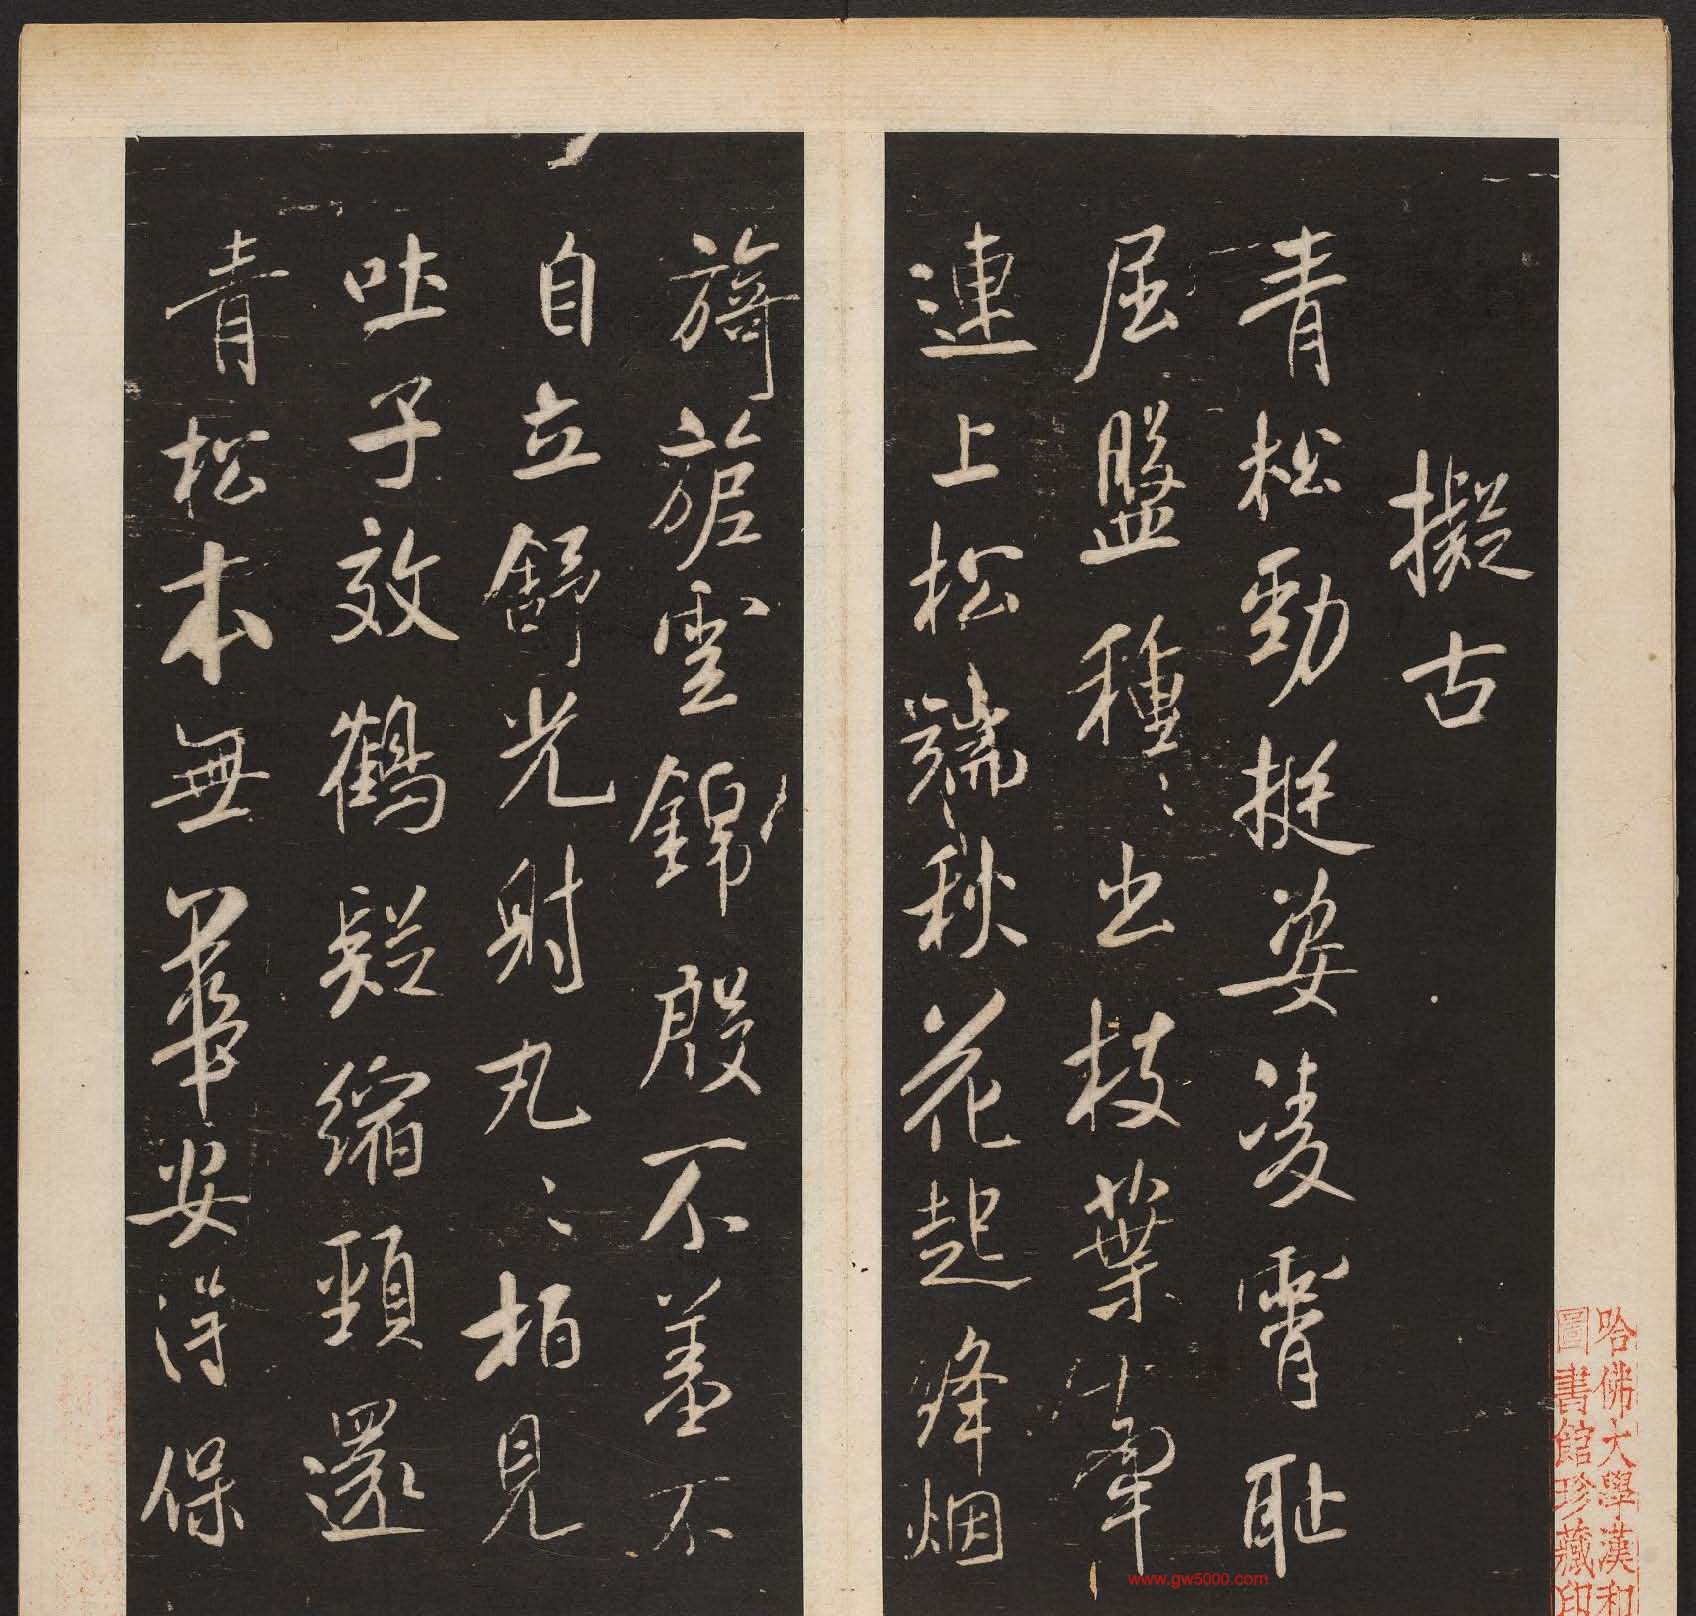 擬古
青松勁挺姿凌霄恥
屈盤種〻出枝葉牽
連上松端秋花起烽烟
旖旎雲錦殷不羞不
自立舒光射丸〻柏見
吐子效鶴疑縮頸還
青松本無華安得保
哈佛大學漢和
圖書館珍藏印
www.gw5000.com